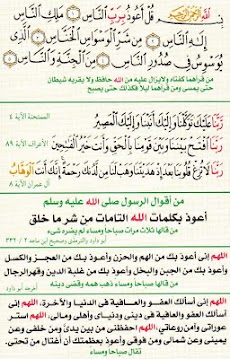 بسم الله الرحمن الرحيم قُلْ أَعُوذُ بِرَبِّ النَّاسِ ۝ مَلِكِ النَّاسِ ۝
إِلَٰهِ النَّاسِ ۝ مِن شَرِّ الْوَسْوَاسِ الْخَنَّاسِ ۝ الَّذِي
يُوَسْوِسُ فِي صُدُورِ النَّاسِ ۝ مِنَ الْجِنَّةِ وَالنَّاسِ ۝
من قرأهما كفتاه ولايزال عليه من الله حافظ ولا يقربه شيطان
حتى يمسى ومن قرأهما ليلا فكذلك حتى يصبح
رَبَّنَا عَلَيْكَ تَوَكَّلْنَا وَإِلَيْكَ أَنَبْنَا وَإِلَيْكَ الْمَصِيرُ الممتحنة الآية ٤
رَبَّنَا افْتَحْ بَيْنَنَا وَبَيْنَ قَوْمِنَا بِالْحَقِّ وَأَنتَ خَيْرُ الْفَاتِحِينَ الأعراف الآية ٨٩
رَبَّنَا لَا تُزِغْ قُلُوبَنَا بَعْدَ إِذْ هَدَيْتَنَا وَهَبْ لَنَا مِن لَّدُنكَ رَحْمَةً إِنَّكَ أَنتَ الْوَهَّابُ
آل عمران الآية ٨
من أقوال الرسول صلى الله عليه وسلم
أعوذ بكلمات الله التامات من شر ما خلق
من قالها ثلاث مرات صباحا ومساء لم يضره شىء
أبو داود والترمذى وصحيح ابن ماجه ٢ / ٣٣٢
اللهم إنى أعوذ بك من الهم والحزن وأعوذ بك من العجز والكسل
وأعوذ بك من الجبن والبخل وأعوذ بك من غلبة الدين وقهر الرجال
من قالها صباحا ومساء ذهب همه وقضى دينه
أخرجه أبو داود
اللهم إنى أسألك العفو والعافية فى الدنيا والآخرة، اللهم إنى
أسألك العفو والعافية فى دينى ودنياى وأهلى ومالى، اللهم استر
عوراتى وآمن روعاتى، اللهم احفظنى من بين يدىّ ومن خلفى وعن
يمينى وعن شمالى ومن فوقى، وأعوذ بعظمتك أن أغتال من تحتى.
تقال صباحا ومساء